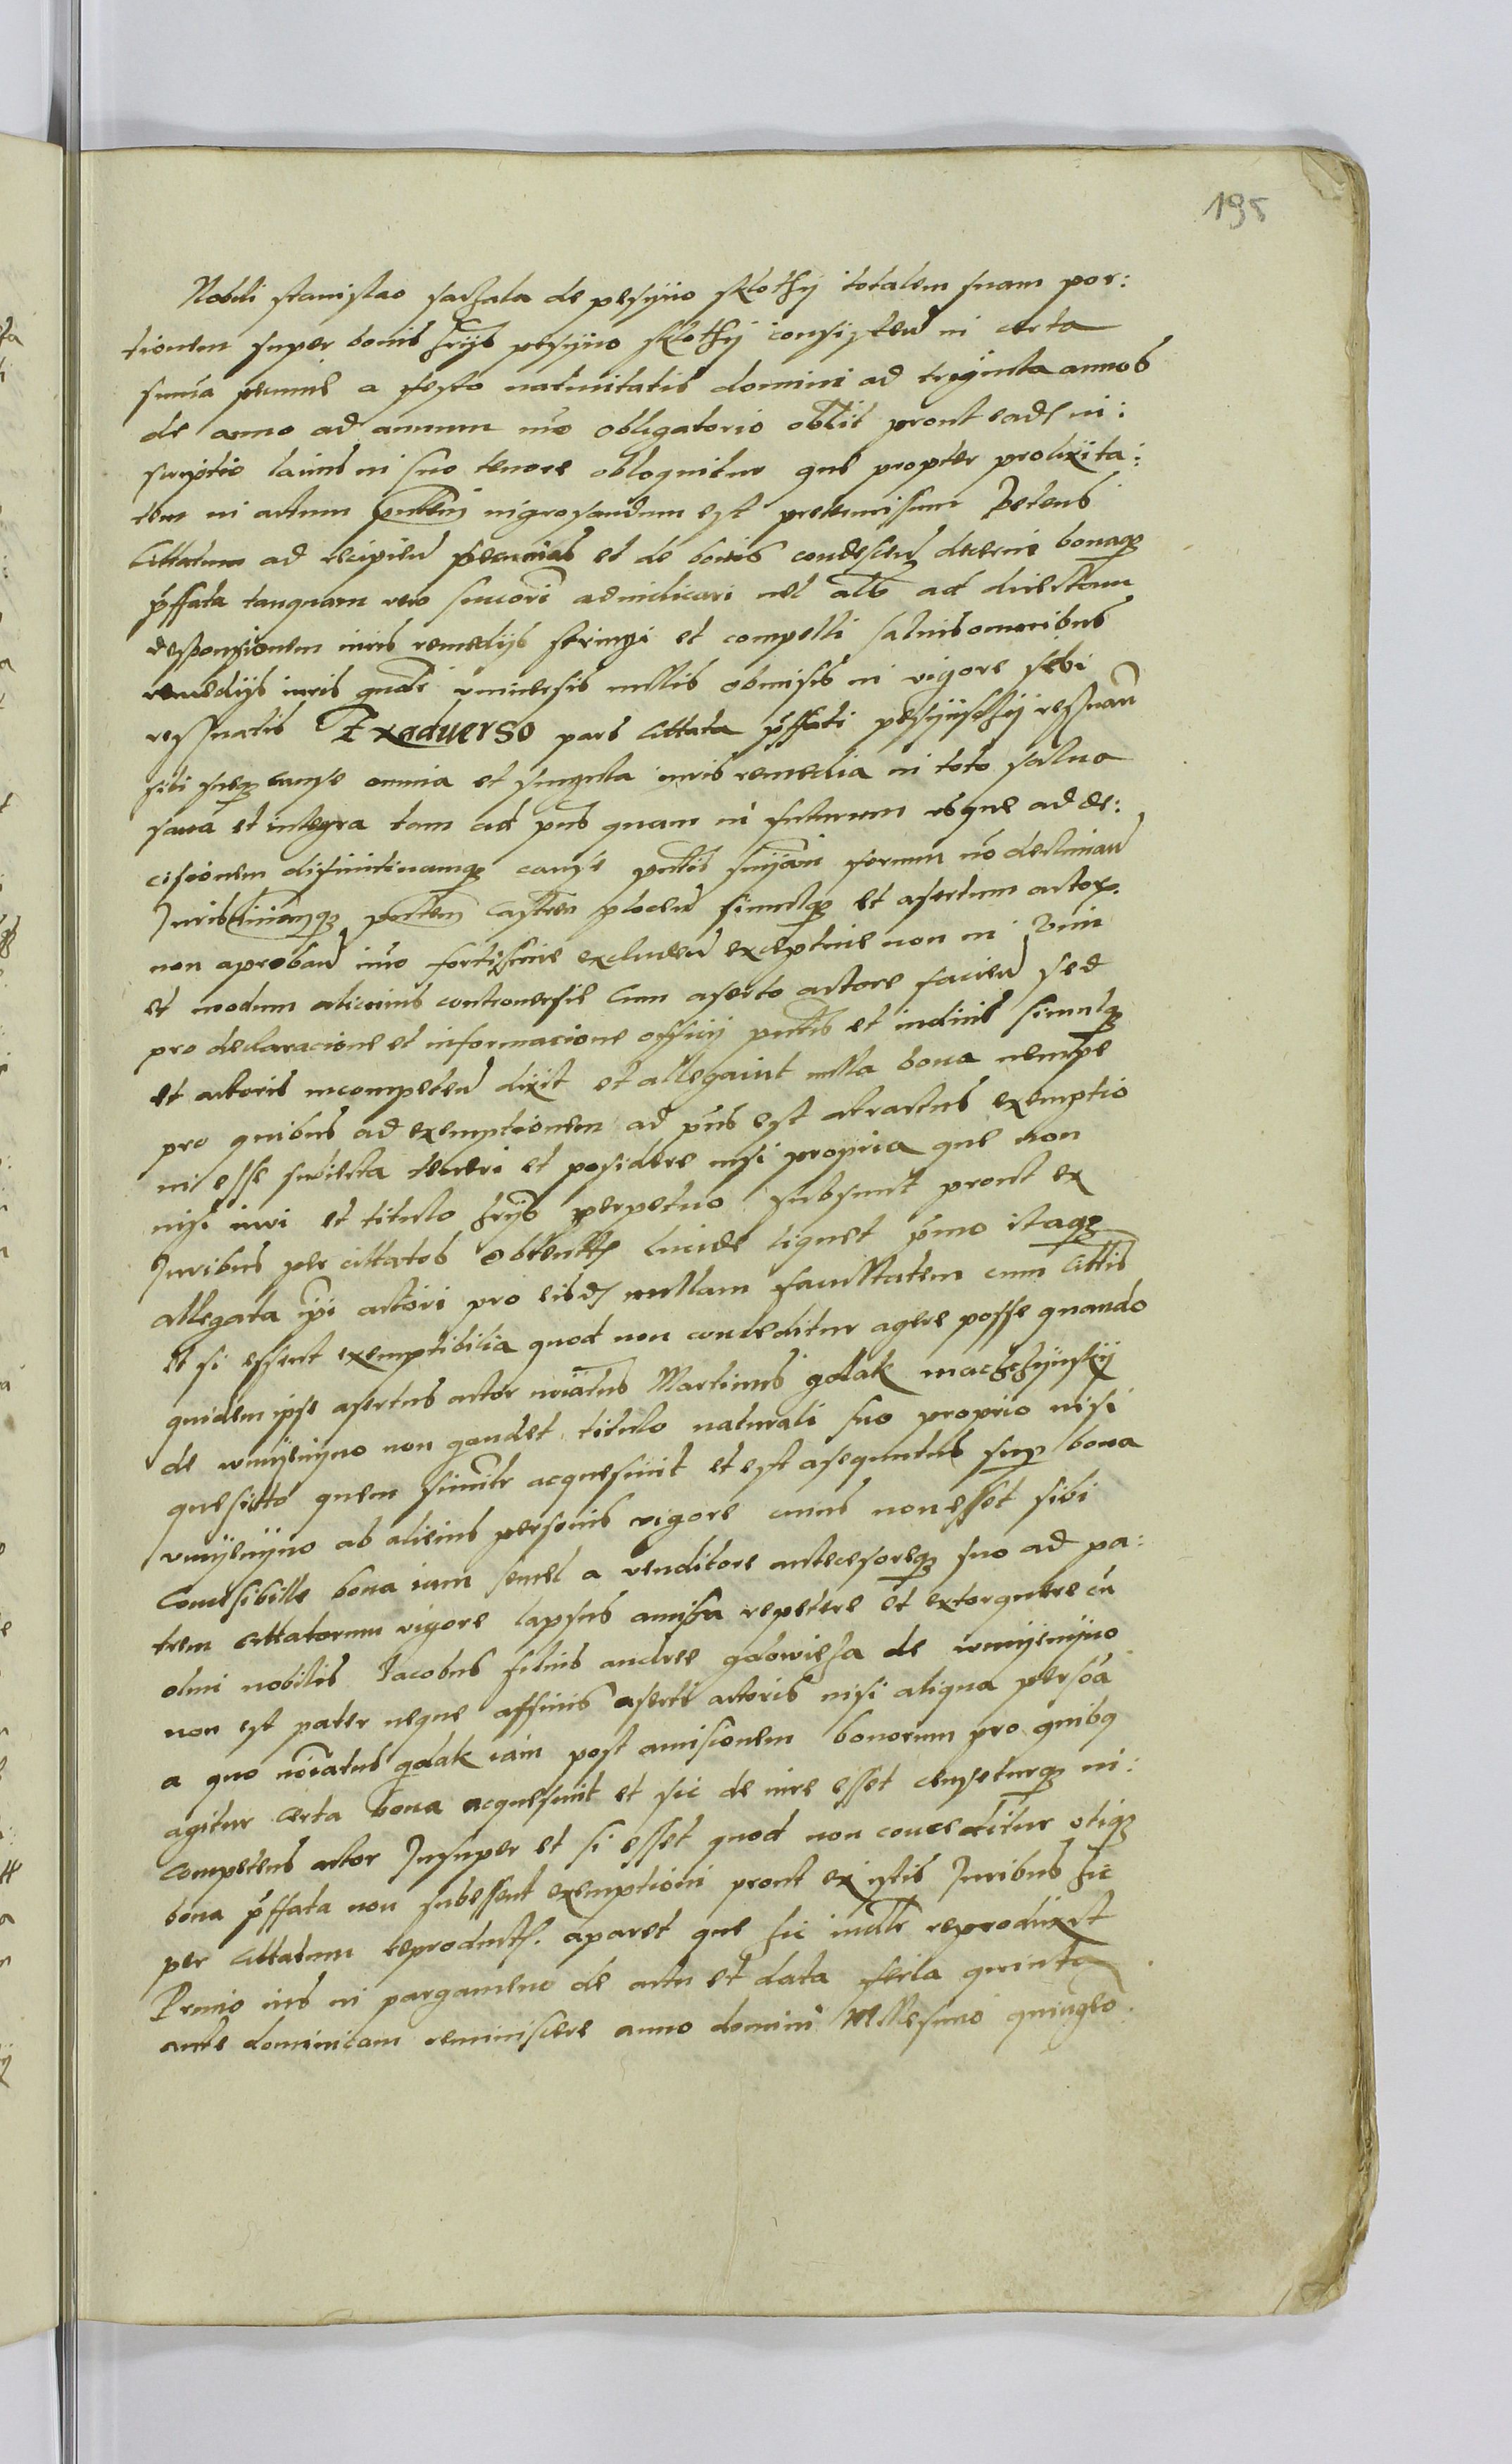 195
Nobili stanislao sachala de pesyno sklothy totalem suam por:
tionem super bonis hrijs pesyno sklothy consisten in certa
suma pecunie a festo nativitatis domini ad treginta annos
de anno ad annum mo obligatorio oblit prout ead in:
scriptio lacius in suo tenore obloquitur que propter prolixita:
tem in actum pntem ingrosandum est pretermisum Petens
Cittatum ad recipien pecunias et de bonis condescen decerni bonaqz
pffata tanquam vero succori adiudicari vel alr ad directam
responsionem iuris remedijs stringi et compelli salvis omnibus
remedijs iuris quandi universis nullis obmisis in vigore sibi
reservatis Exaduerso pars Cittata pffati pesyńschij reservan
sibi sueqz cause omnia et singula iuris remedia in toto salva
sana et integra tam ad pns quam in futurum usque ad de:
cisionem difinitivamqz cause pntis forum no declinan
Jurisditionemqz pntem Castren plocen simulqz et asertum actorem
non aproban imo fortissime excluden exceptive non in vim
et modum alicuius controversie Cum aserto actore facien sed
pro declaracione et informacione officij pntis et iudicis simulqz
et actoris incompeten dixit et allegavit nulla bona nempe
pro quibus ad exemptionem ad pns est atractus exemptio
ni esse subiecta teneri et posidere nisi propria que non
nisi iuri et titulo hrijs perpetuo subsunt prout ex
Juribus per cittatos obtentis lucide liquet pmo itaqz
allegata ipi actori pro eisd nullam facultatem cum Cittis
et si essent exemptibilia quod non conceditur agere posse quando
quidem ipse asertus actor noiatus Martinus golak machchyńskij
de wmyenyno non gaudet titulo naturali suo proprio nisi
quesitto quem similr acquesivit et est asequutus sup bona
vmyenyno ab alienis personis vigore cuius non esset sibi
Concesibille bona iam semel a venditore antecesoreqz suo ad pa:
trem cittatorum vigore lapsus amissa repetere et extorquere cu
olim nobilis Jacobus filius andree golowicha de wmyenyno
non est pater neque affinis aserti actoris nisi aliqua persoa
a quo noiatus golak iam post amisionem bonorum pro quibq
agitur certa bona acquesivit et sic de iure esset censeturqz in:
competens actor Insuper et si esset quod non conceditur utiqz
bona pffata non subessent exemptioni prout ex istis Juribus hic
per Cittatum reproductis. aparet que hic iudllr reproduxit
Primo ius in pargameno de actu et data feria quinta
ante dominicam reminiscere anno domini Millesimo quingeo